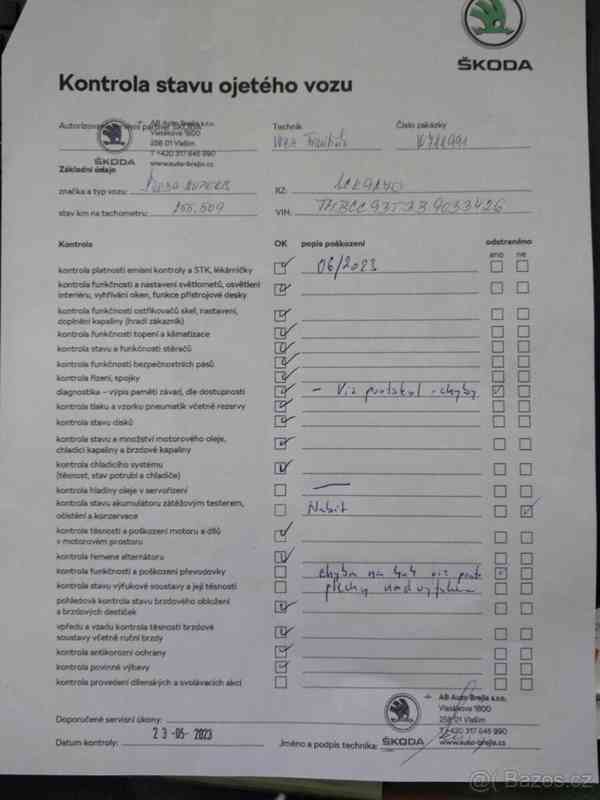 ŠKODA
Kontrola stavu ojetého vozu
AB Auto Brejla s.r.o.
Vlasákova 1800
258 01 Vlašim
T +420 317 845 990
www.auto-brejla.cz
ŠKODA
Technik
Číslo zakázky
Základní údaje
značka a typ vozu:
RZ:
stav km na tachometru: 155.509
VIN:
Kontrola OK popis poškození odstraněno
ano ne
kontrola platnosti emisní kontroly a STK, lékárničky 06/2023
kontrola funkčnosti a nastavení světlometů, osvětlení
interiéru, vyhřívání oken, funkce přístrojové desky
kontrola funkčnosti ostřikovačů skel, nastavení,
doplnění kapaliny (hradí zákazník)
kontrola funkčnosti topení a klimatizace
kontrola stavu a funkčnosti stěračů
kontrola funkčnosti bezpečnostních pásů
kontrola řízení, spojky
diagnostika – výpis paměti závad, dle dostupnosti - viz protokol - chyby
kontrola tlaku a vzorku pneumatik včetně rezervy
kontrola stavu disků
kontrola stavu a množství motorového oleje,
chladicí kapaliny a brzdové kapaliny
kontrola chladicího systému
(těsnost, stav potrubí a chladiče)
kontrola hladiny oleje v servořízení
kontrola stavu akumulátoru zátěžovým testerem,
očištění a konzervace Nabít
kontrola těsnosti a poškození motoru a dílů
v motorovém prostoru
kontrola řemene alternátoru
kontrola funkčnosti a poškození převodovky chyba na 4x4 viz
kontrola stavu výfukové soustavy a její těsnosti plechy nad výfukem
pohledová kontrola stavu brzdového obložení
a brzdových destiček
vpředu a vzadu kontrola těsnosti brzdové
soustavy včetně ruční brzdy
kontrola antikorozní ochrany
kontrola povinné výbavy
kontrola provedení dílenských a svolávacích akcí
Doporučené servisní úkony:
Datum kontroly: 23 -05- 2023
Jméno a podpis technika:
ŠKODA
AB Auto Brejla s.r.o.
Vlasákova 1800
258 01 Vlašim
T +420 317 845 990
www.auto-brejla.cz
@ Bazos.cz